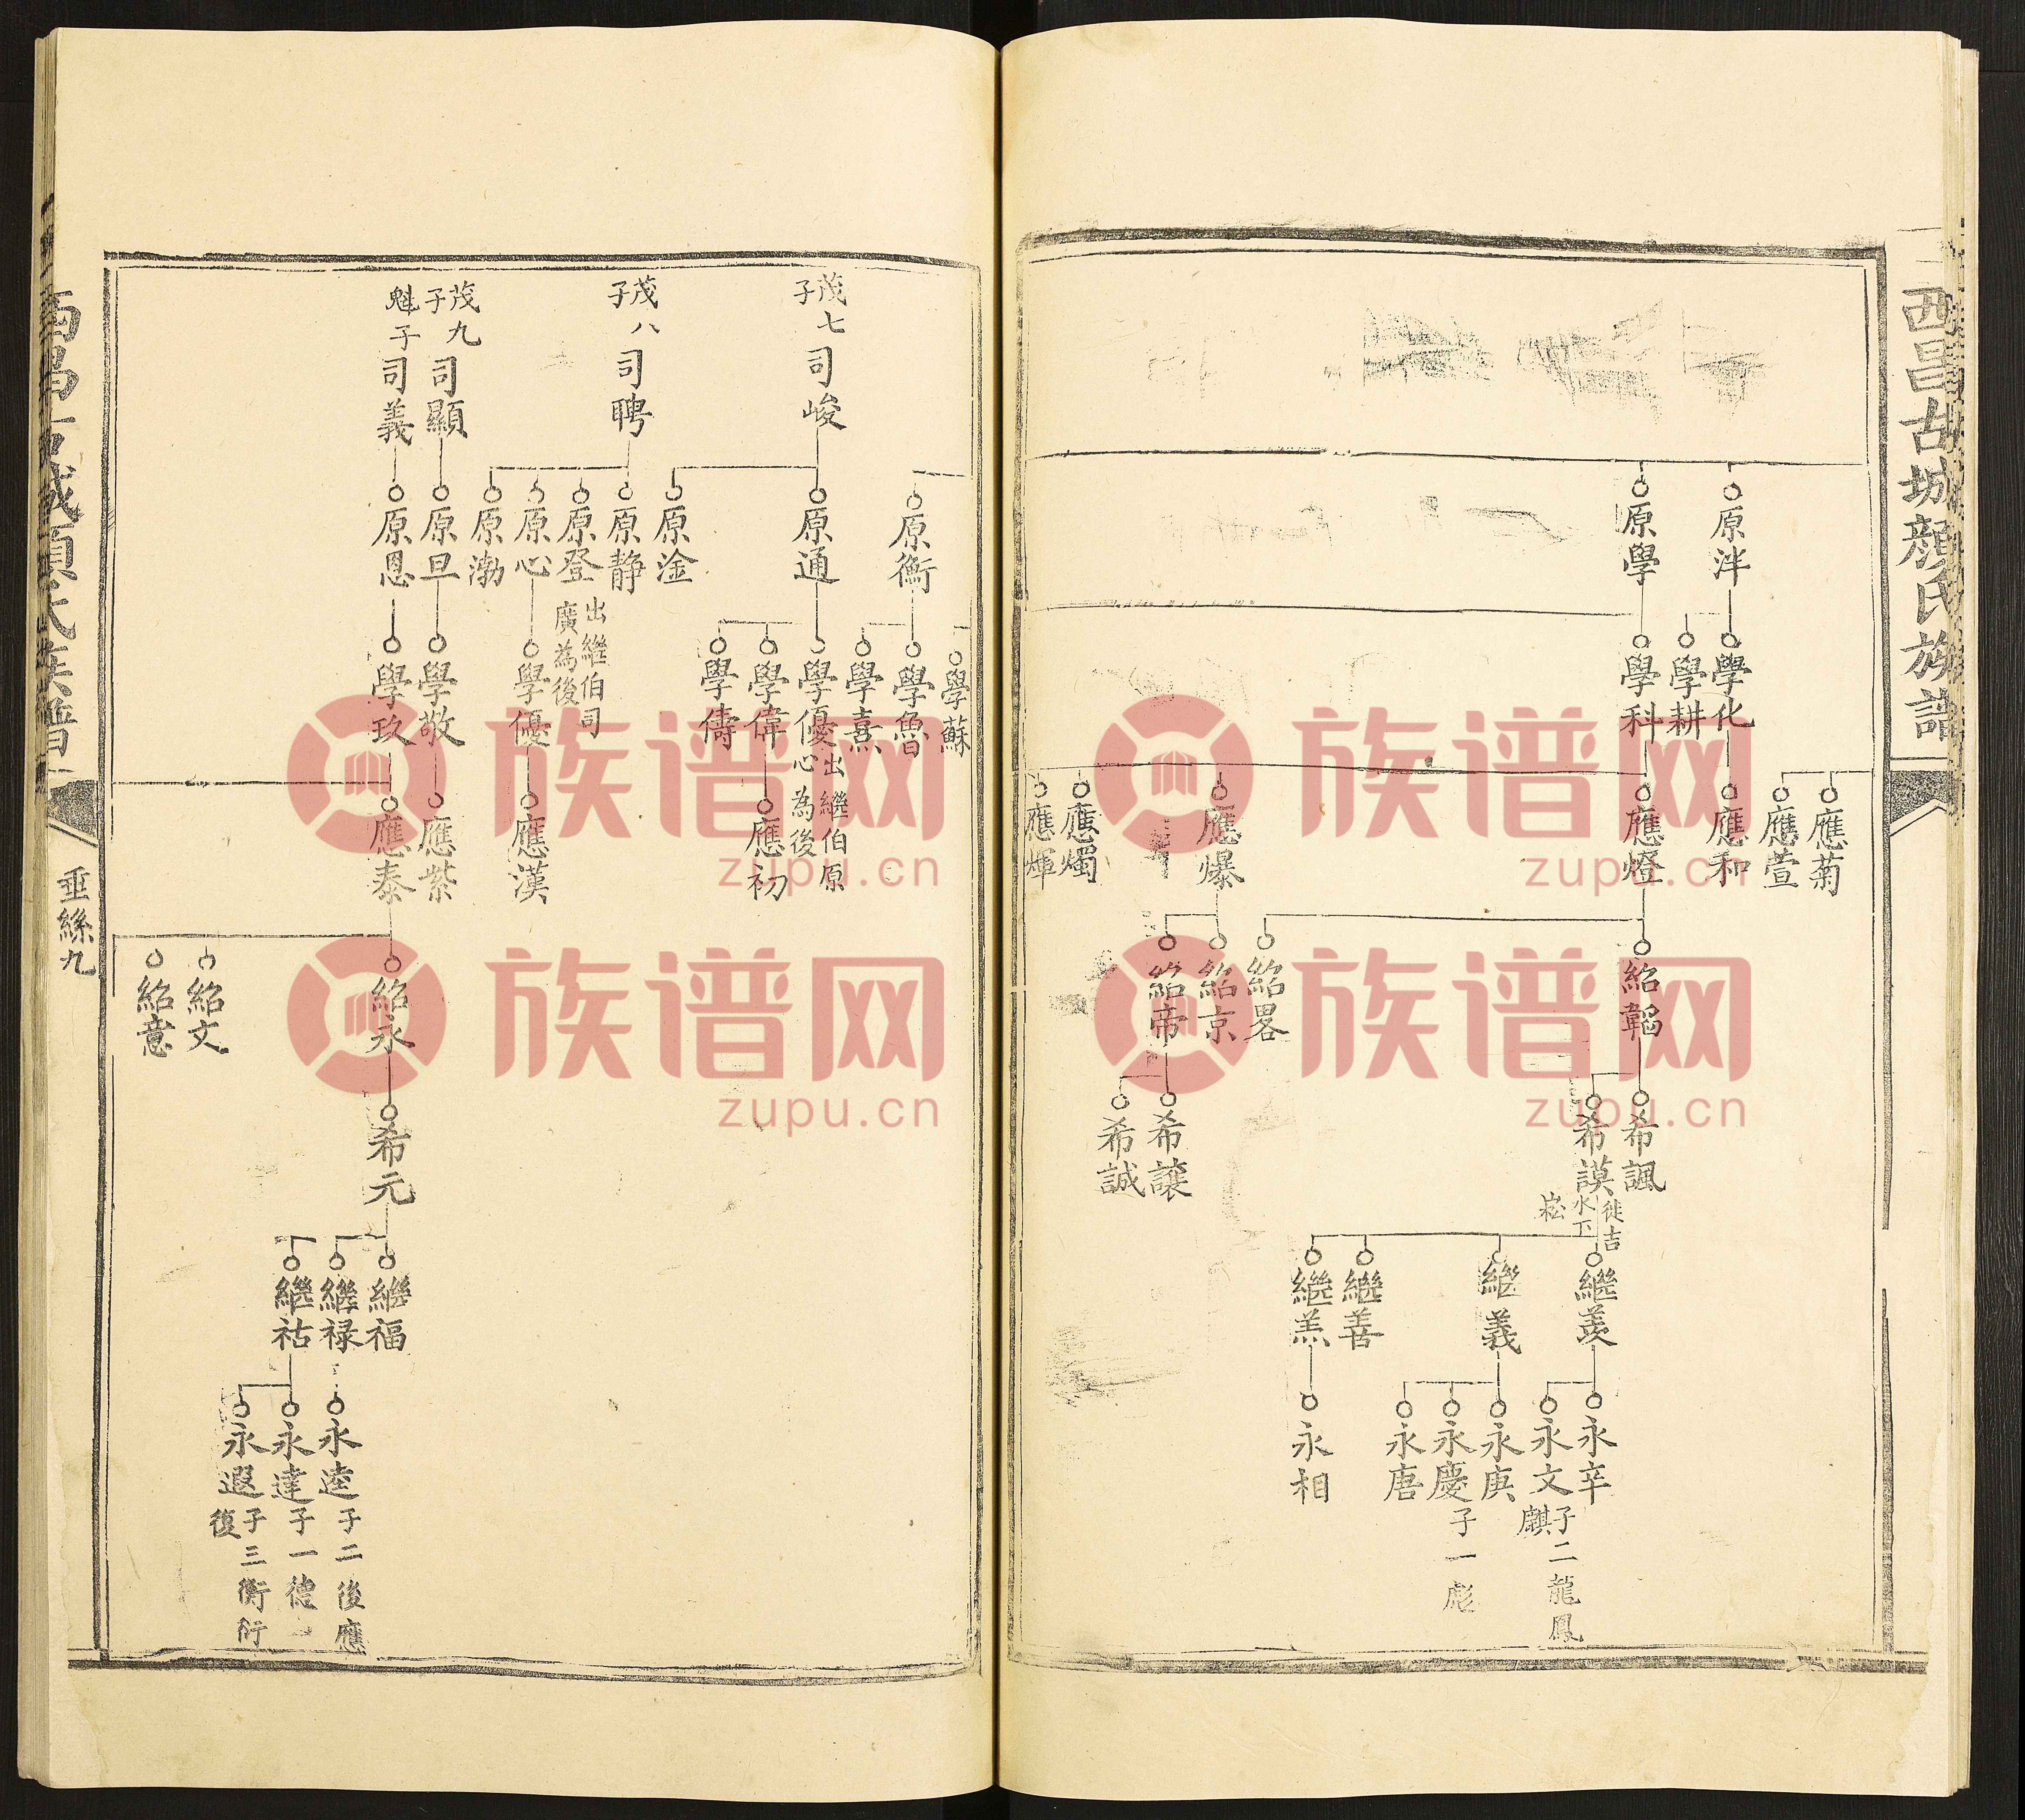 西昌古城顏氏族譜
原泮
原學
學化
學耕
學科
應菊
應萱
應和
應燈
應爆
應燭
應煇
紹韜
紹畧
紹京
紹帝
希諷
希謨 徙吉水下崧
希讓
希誠
繼羨
繼義
繼善
繼羔
永辛
永文 子二龍鳳麒
永庚
永慶 子一彪
永唐
永相
茂七子 司峻
茂八子 司聘
茂九子 司顯
魁子 司義
原衡
原通
原淦
原静
原登 出繼伯司廣為後
原心
原渤
原旦
原恩
學蘇
學魯
學熹
學優 出繼伯原心為後
學偉
學儔
學優
學敬
學玖
應初
應漢
應紫
應泰
紹永
紹文
紹意
希元
繼福
繼禄
繼祜
永逵 子二後應
永達 子一德
永遐 子三衡衍復
西昌古城顏氏族譜
垂絲九
族谱网
zupu.cn
族谱网
zupu.cn
族谱网
zupu.cn
族谱网
zupu.cn